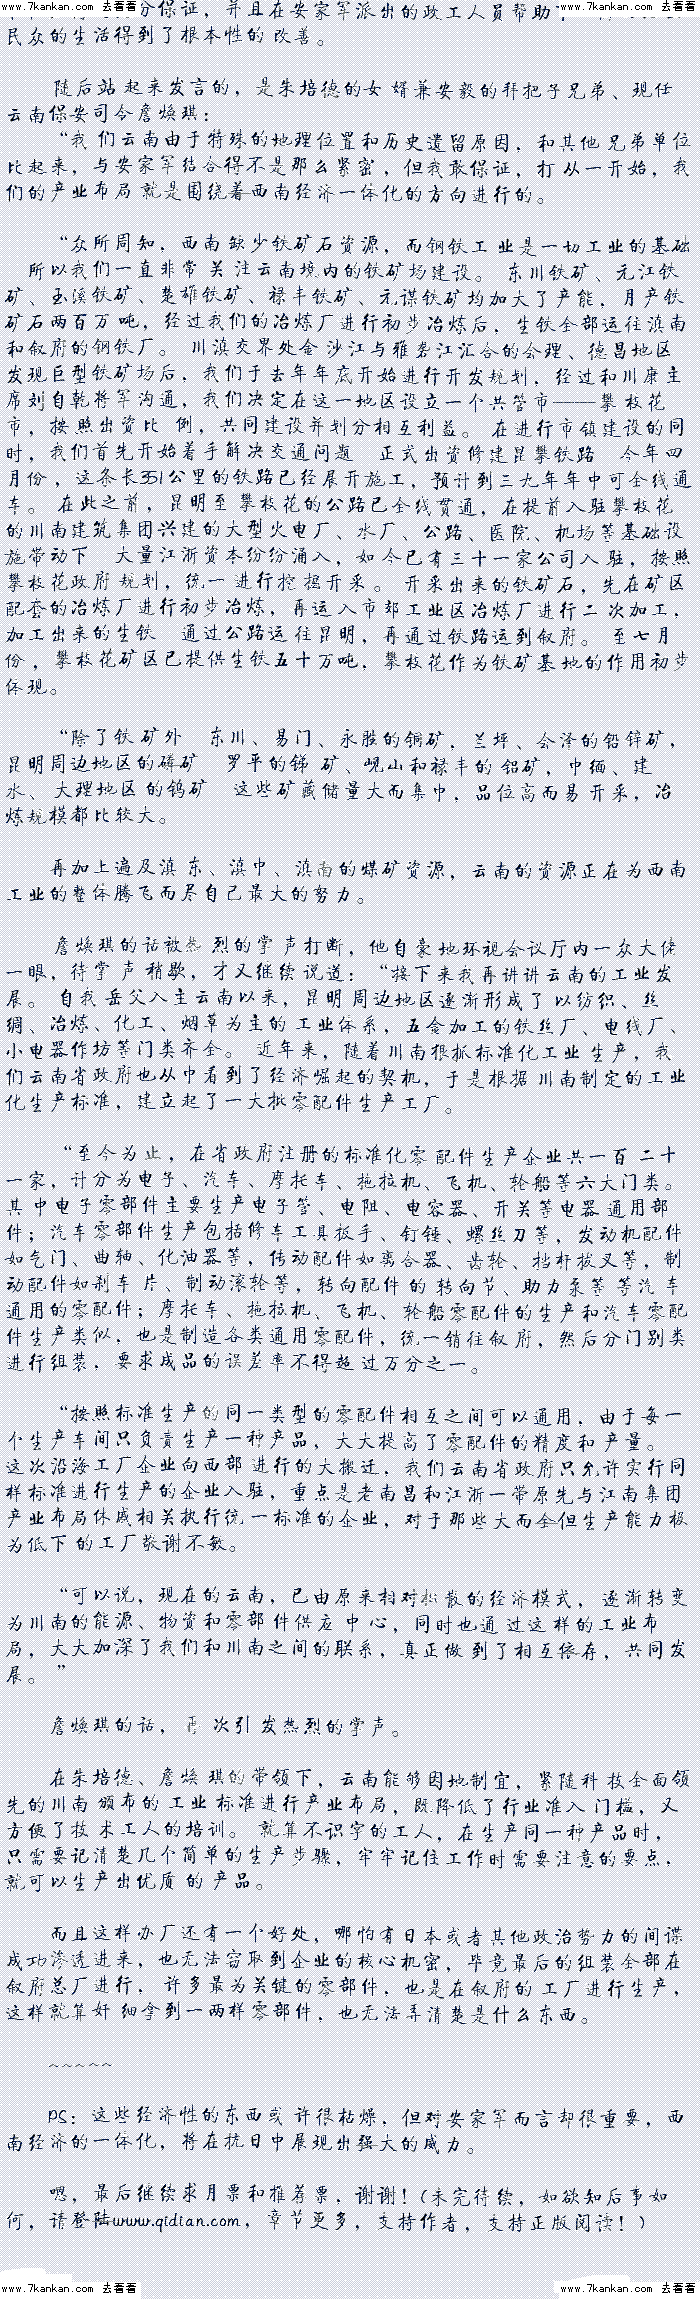 www.7kankan.com 去看看 www.7kankan.com 去看看
分保证，并且在安家军派出的政工人员帮助
民众的生活得到了根本性的改善。
随后站起来发言的，是朱培德的女婿兼安毅的拜把子兄弟、现任
云南保安司令詹焕琪：
“我们云南由于特殊的地理位置和历史遗留原因，和其他兄弟单位
比起来，与安家军结合得不是那么紧密，但我敢保证，打从一开始，我
们的产业布局就是围绕着西南经济一体化的方向进行的。
“众所周知，西南缺少铁矿石资源，而钢铁工业是一切工业的基础
所以我们一直非常关注云南境内的铁矿场建设。东川铁矿、元江铁
矿、玉溪铁矿、楚雄铁矿、禄丰铁矿、元谋铁矿均加大了产能，月产铁
矿石两百万吨，经过我们的冶炼厂进行初步冶炼后，生铁全部运往滇南
和叙府的钢铁厂。川滇交界处金沙江与雅砻江汇合的会理、德昌地区
发现巨型铁矿场后，我们于去年年底开始进行开发规划，经过和川康主
席刘自乾将军沟通，我们决定在这一地区设立一个共管市——攀枝花
市，按照出资比例，共同建设并划分相互利益。在进行市镇建设的同
时，我们首先开始着手解决交通问题 正式出资修建昆攀铁路 今年四
月份，这条长351公里的铁路已经展开施工，预计到三九年年中可全线通
车。在此之前，昆明至攀枝花的公路已全线贯通，在提前入驻攀枝花
的川南建筑集团兴建的大型火电厂、水厂、公路、医院、机场等基础设
施带动下 大量江浙资本纷纷涌入，如今已有三十一家公司入驻，按照
攀枝花政府规划，统一进行挖掘开采。开采出来的铁矿石，先在矿区
配套的冶炼厂进行初步冶炼，再运入市郊工业区冶炼厂进行二次加工，
加工出来的生铁 通过公路运往昆明，再通过铁路运到叙府。至七月
份，攀枝花矿区已提供生铁五十万吨，攀枝花作为铁矿基地的作用初步
体现。
“除了铁矿外 东川、易门、永胜的铜矿，兰坪、会泽的铅锌矿，
昆明周边地区的磷矿 罗平的锑矿、岘山和禄丰的铝矿，中缅、建
水、大理地区的钨矿 这些矿藏储量大而集中，品位高而易开采，冶
炼规模都比较大。
再加上遍及滇东、滇中、滇南的煤矿资源，云南的资源正在为西南
工业的整体腾飞而尽自己最大的努力。
詹焕琪的话被热烈的掌声打断，他自豪地环视会议厅内一众大佬
一眼，待掌声稍歇，才又继续说道：“接下来我再讲讲云南的工业发
展。自我岳父入主云南以来，昆明周边地区逐渐形成了以纺织、丝
绸、冶炼、化工、烟草为主的工业体系，五金加工的铁丝厂、电线厂、
小电器作坊等门类齐全。近年来，随着川南狠抓标准化工业生产，我
们云南省政府也从中看到了经济崛起的契机，于是根据川南制定的工业
化生产标准，建立起了一大批零配件生产工厂。
“至今为止，在省政府注册的标准化零配件生产企业共一百二十
一家，计分为电子、汽车、摩托车、拖拉机、飞机、轮船等六大门类。
其中电子零部件主要生产电子管、电阻、电容器、开关等电器通用部
件；汽车零部件生产包括修车工具扳手、钉锤、螺丝刀等，发动机配件
如气门、曲轴、化油器等，传动配件如离合器、齿轮、挡杆拔叉等，制
动配件如刹车片、制动滚轮等，转向配件的转向节、助力泵等等汽车
通用的零配件；摩托车、拖拉机、飞机、轮船零配件的生产和汽车零配
件生产类似，也是制造各类通用零配件，统一销往叙府，然后分门别类
进行组装，要求成品的误差率不得超过万分之一。
“按照标准生产的同一类型的零配件相互之间可以通用，由于每一
个生产车间只负责生产一种产品，大大提高了零配件的精度和产量。
这次沿海工厂企业向西部进行的大搬迁，我们云南省政府只允许实行同
样标准进行生产的企业入驻，重点是老南昌和江浙一带原先与江南集团
产业布局休戚相关执行统一标准的企业，对于那些大而全但生产能力极
为低下的工厂敬谢不敏。
“可以说，现在的云南，已由原来相对松散的经济模式，逐渐转变
为川南的能源、物资和零部件供应中心，同时也通过这样的工业布
局，大大加深了我们和川南之间的联系，真正做到了相互依存，共同发
展。”
詹焕琪的话，再次引发热烈的掌声。
在朱培德、詹焕琪的带领下，云南能够因地制宜，紧随科技全面领
先的川南颁布的工业标准进行产业布局，既降低了行业准入门槛，又
方便了技术工人的培训。就算不识字的工人，在生产同一种产品时，
只需要记清楚几个简单的生产步骤，牢牢记住工作时需要注意的要点，
就可以生产出优质的产品。
而且这样办厂还有一个好处，哪怕有日本或者其他政治势力的间谍
成功渗透进来，也无法窃取到企业的核心机密，毕竟最后的组装全部在
叙府总厂进行，许多最为关键的零部件，也是在叙府的工厂进行生产，
这样就算奸细拿到一两样零部件，也无法弄清楚是什么东西。
~~~~~
PS：这些经济性的东西或许很枯燥，但对安家军而言却很重要，西
南经济的一体化，将在抗日中展现出强大的威力。
嗯，最后继续求月票和推荐票，谢谢！（未完待续，如欲知后事如
何，请登陆www.qidian.com，章节更多，支持作者，支持正版阅读！）
www.7kankan.com 去看看 www.7kankan.com 去看看